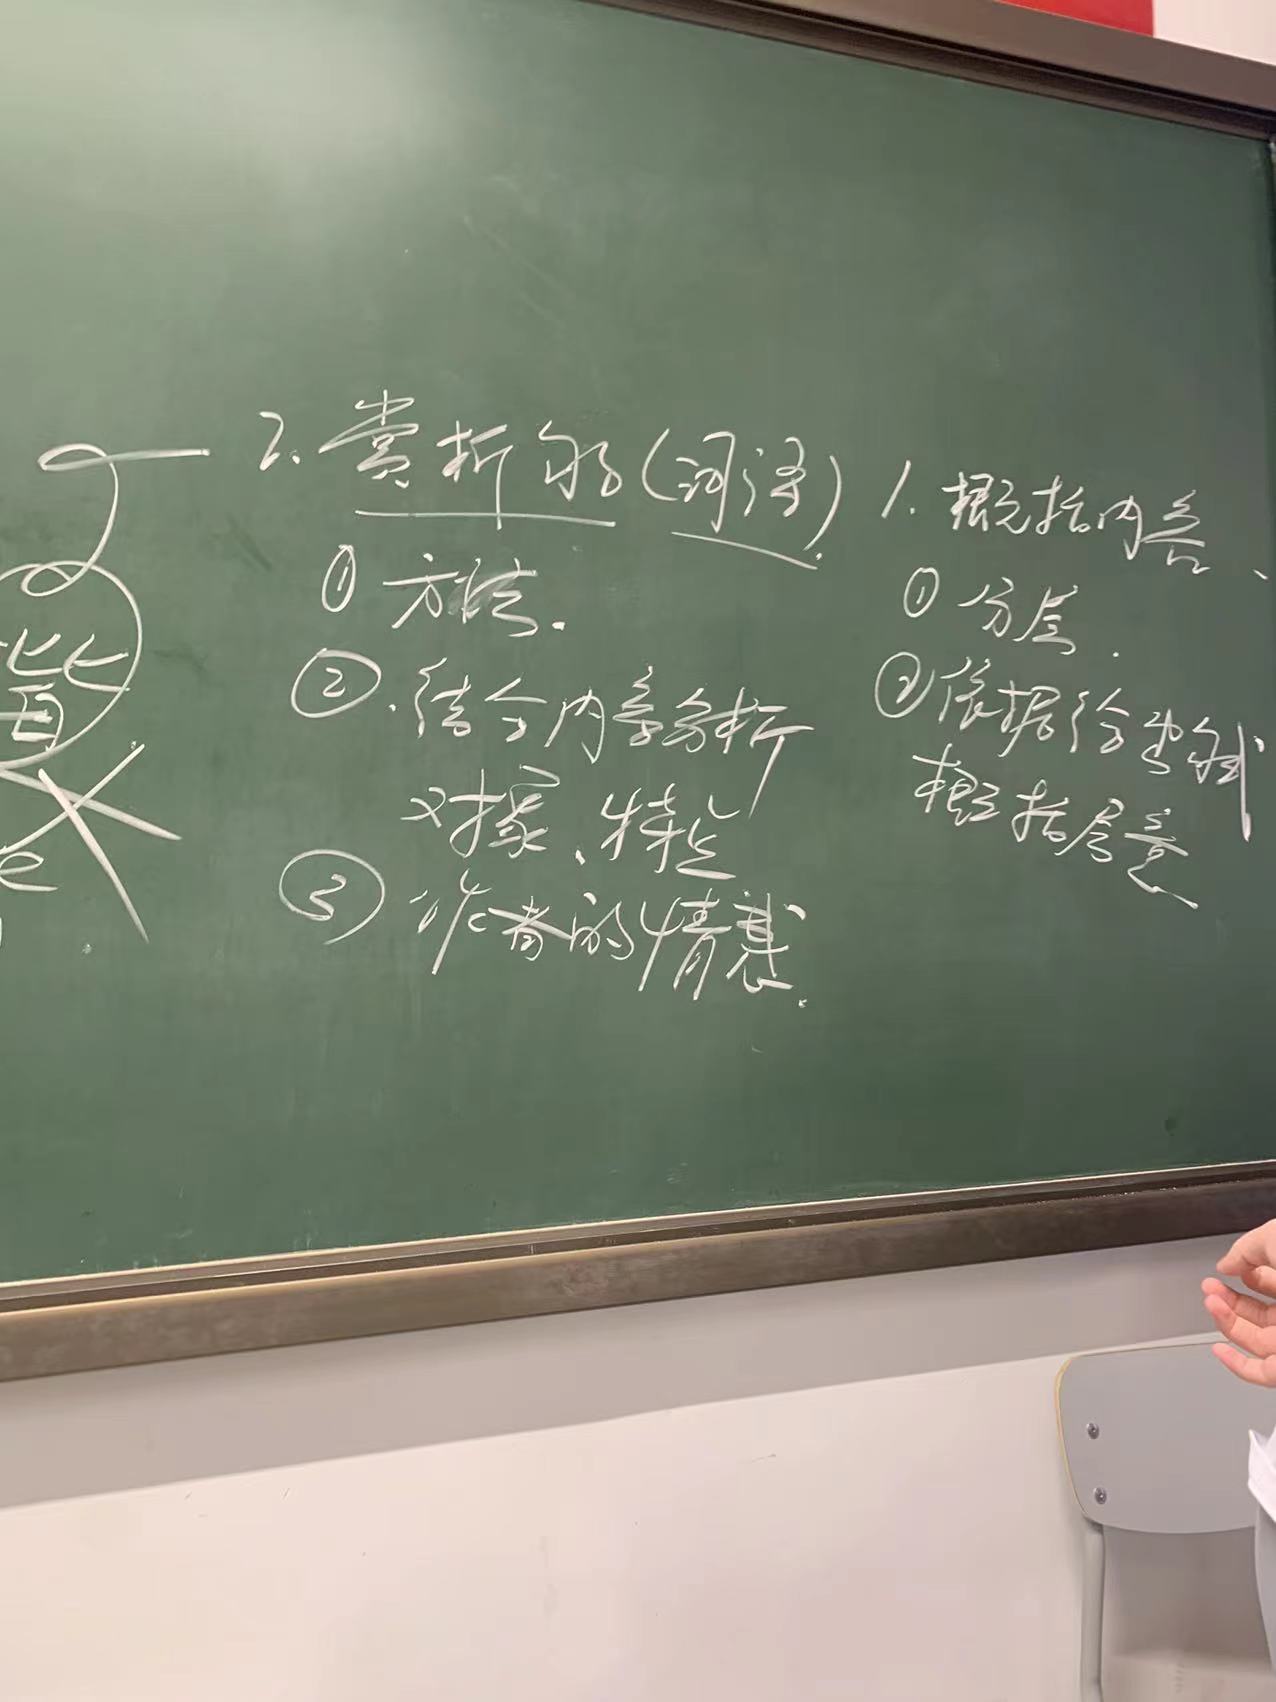 2. 赏析句(词语)
① 方法.
②. 结合内容分析
对象、特点
③ 作者的情感.
1. 概括内容、
① 分层.
②依据给出句式
概括层意
皆
e